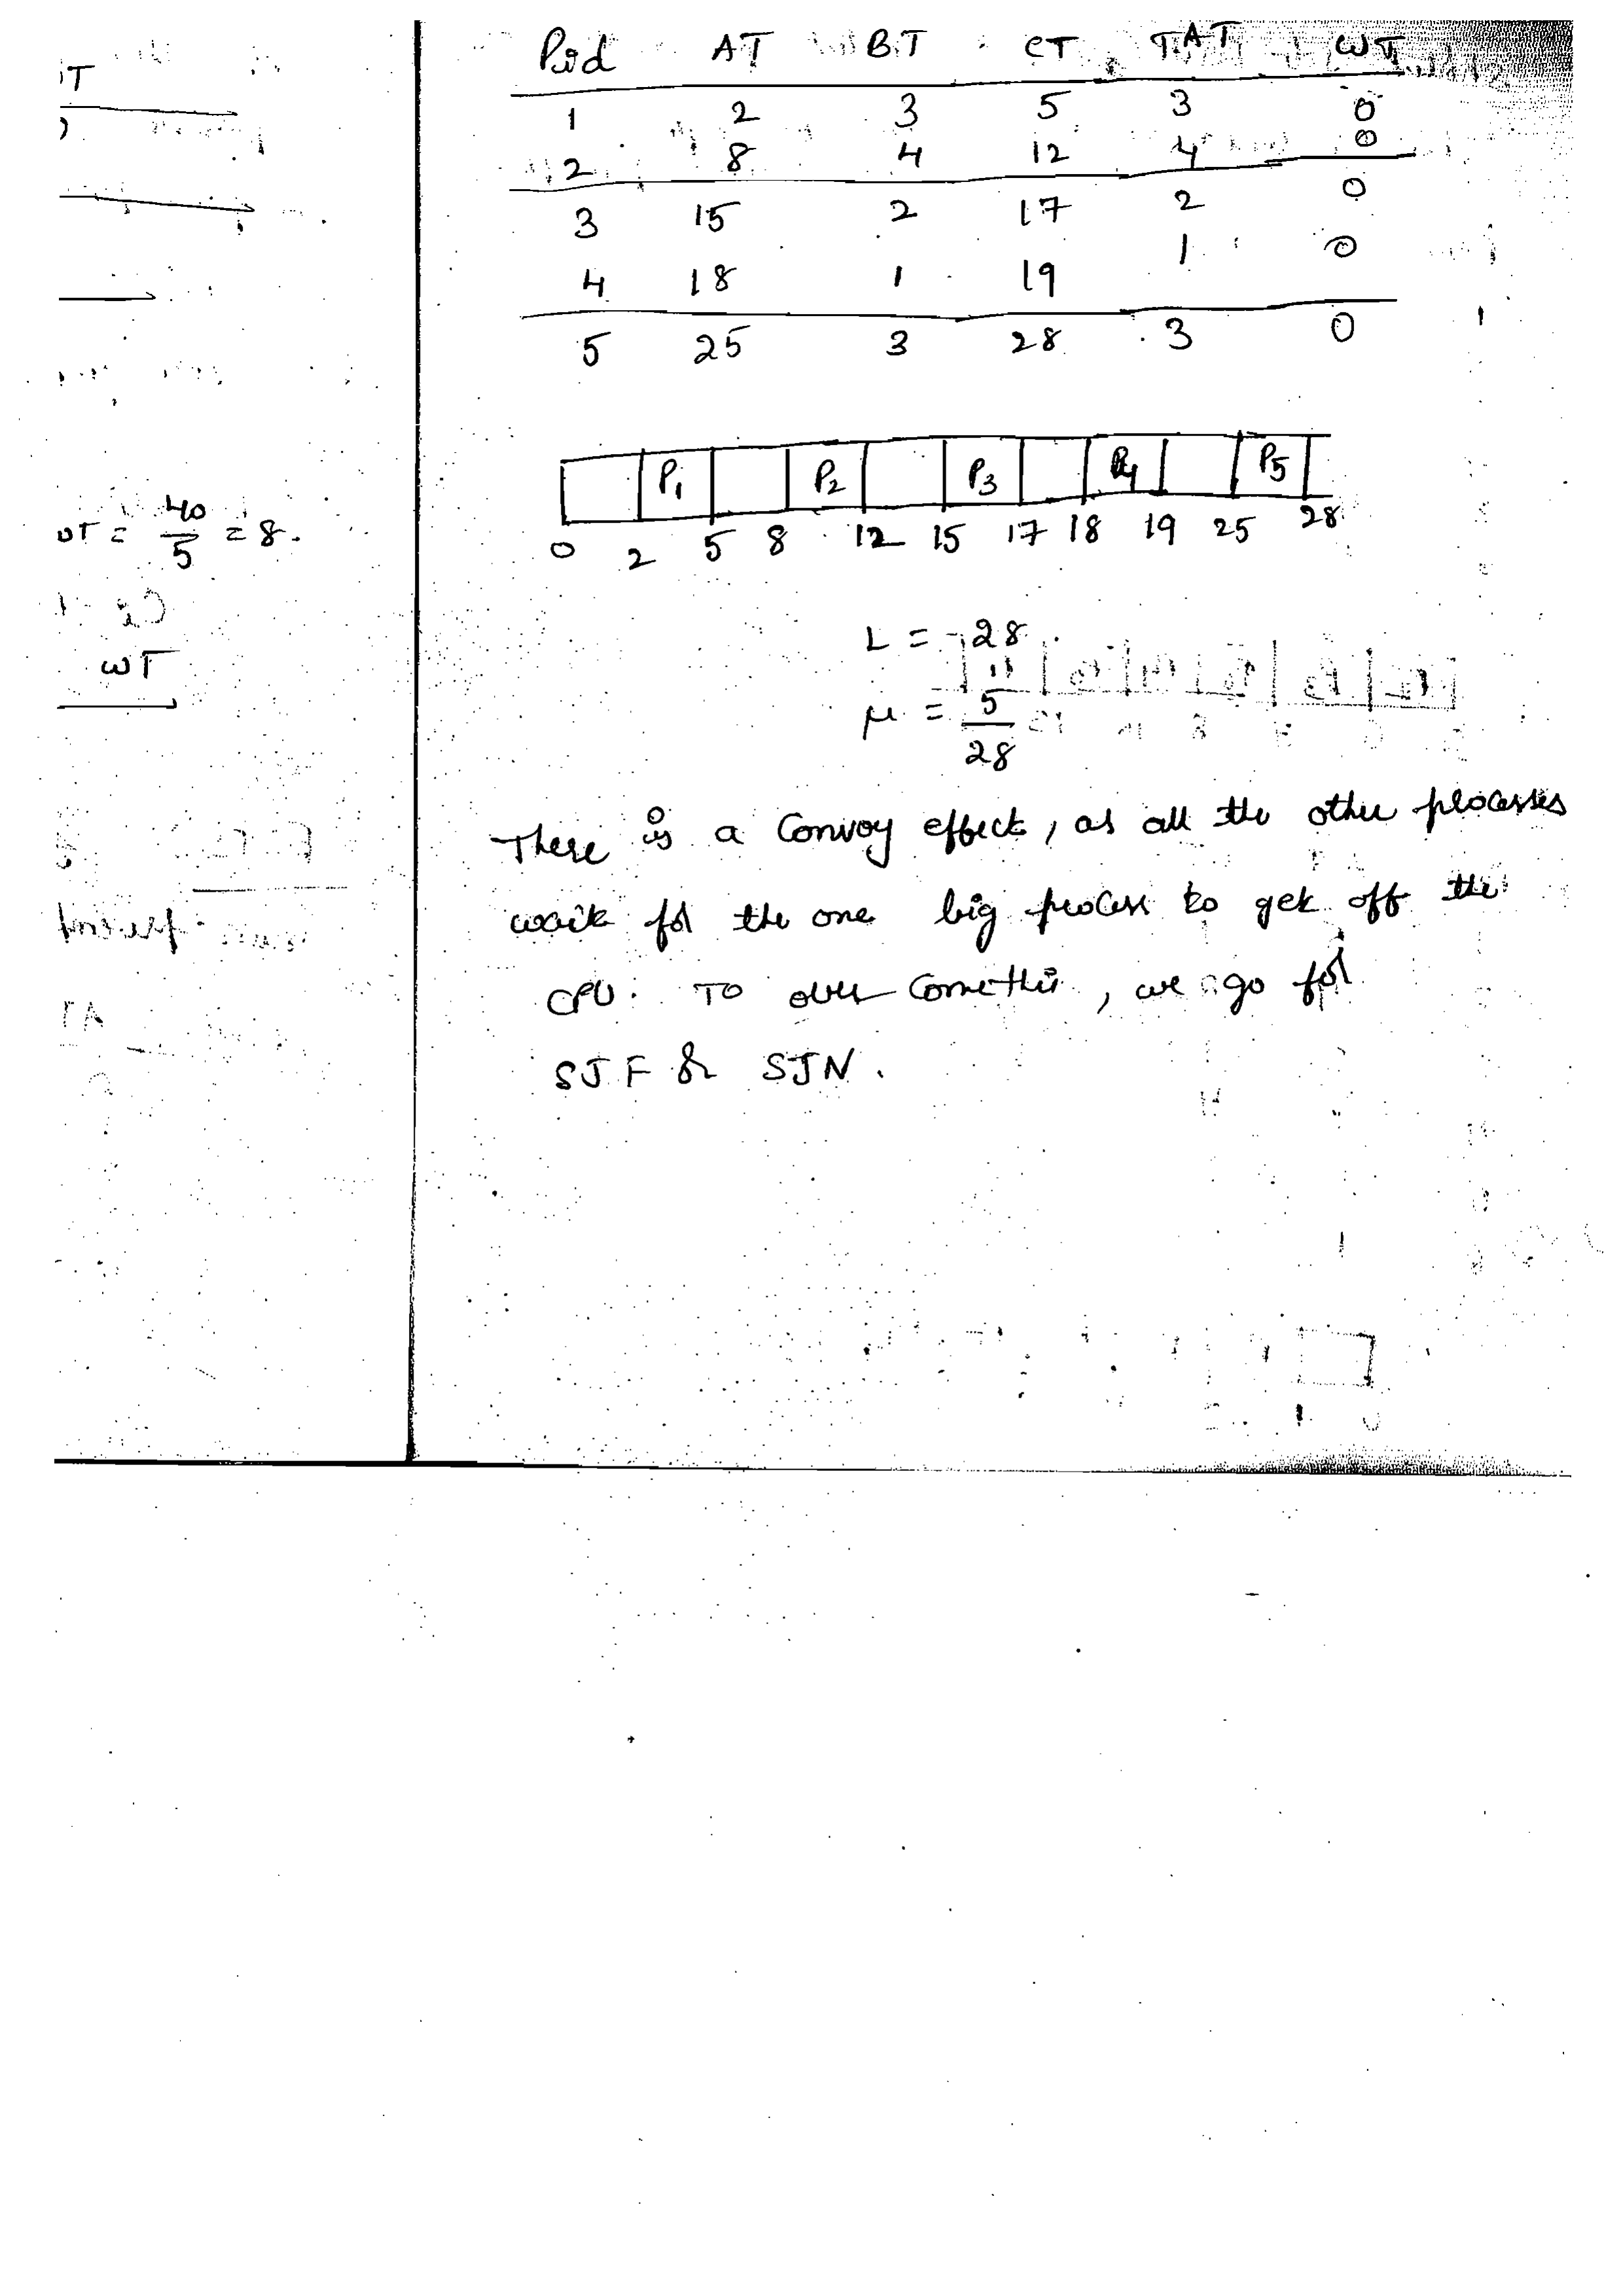 Pid AT BT CT TAT WT
1 2 3 5 3 0
2 8 4 12 4 0
3 15 2 17 2 0
4 18 1 19 1 0
5 25 3 28 3 0
P1 P2 P3 P4 P5
0 2 5 8 12 15 17 18 19 25 28
L = 28
μ = 5
28
There is a Convoy effect, as all the other processes
wait for the one big process to get off the
CPU. To over Come this, we go for
SJF & SJN.
T
WT = 40
5 = 8.
WT